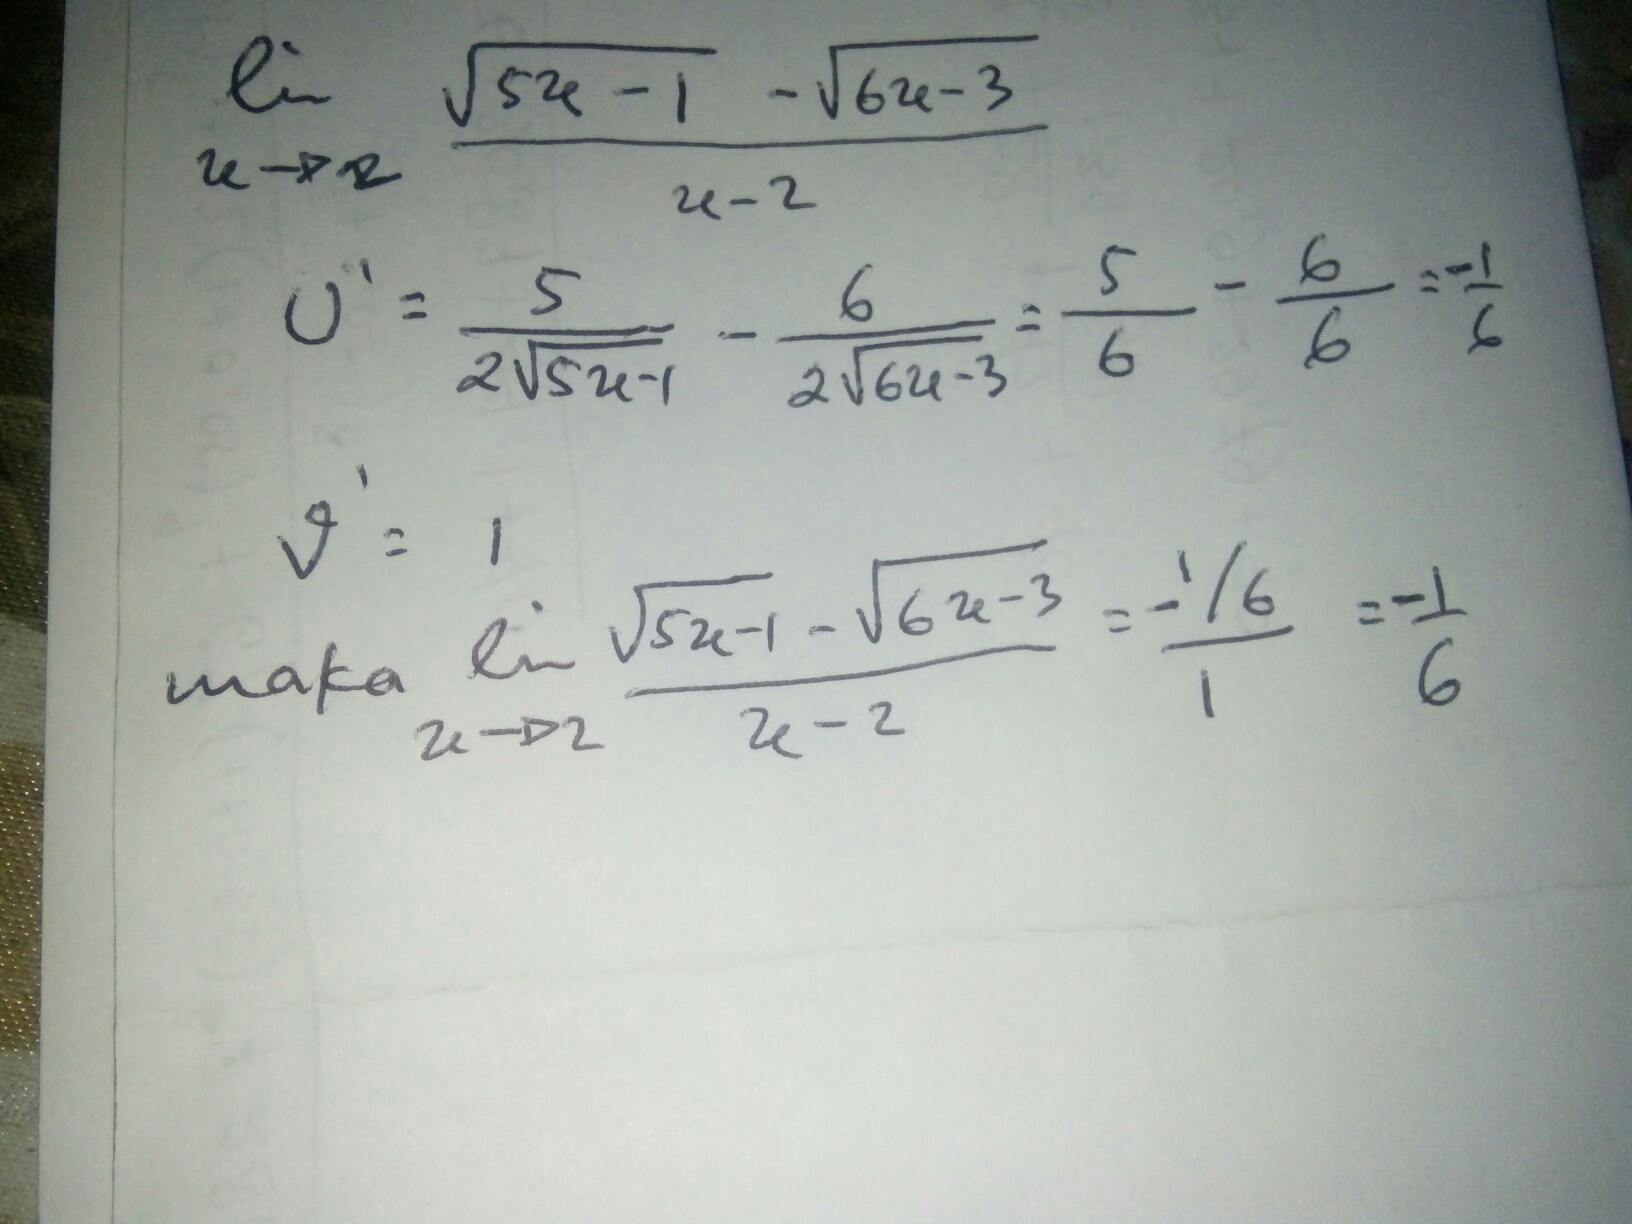 lim √(5x-1) - √(6x-3)
x→2 x-2
U' = 5/(2√(5x-1)) - 6/(2√(6x-3)) = 5/6 - 6/6 = -1/6
V' = 1
maka lim x→2 (√(5x-1) - √(6x-3))/(x-2) = (-1/6)/1 = -1/6